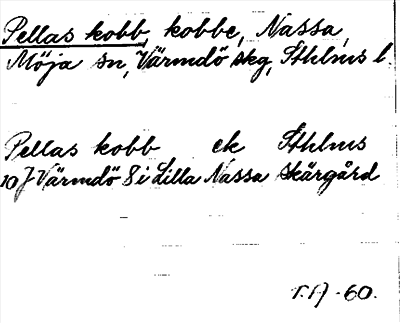 Pellas kobb, kobbe, Nassa,
Möja sn, Värmdö skg, Sthlms l.
Pellas kobb ek Sthlms
10J Värmdö 8i Lilla Nassa skärgård
T.A -60.